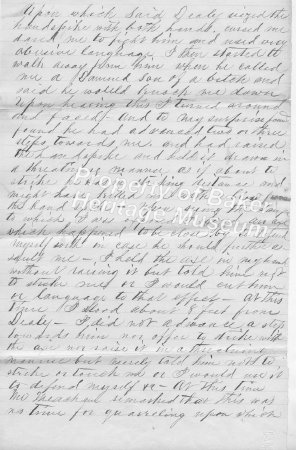 Upon which said Dealy seized the
handspike with both hands, cursed me
dared me to fight him and used very
abusive language, I then started to
walk away from him when he called
me a Damned Son of a bitch and
said he would knock me down
upon hearing this I turned around
and faced and to my surprise
found he had advanced two or three
steps towards me and had raised
the handspike and held it drawn in
a threatening manner as if about to
strike, he was in striking distance and
might have killed me
the hand
to which I was
which happened to be close
myself with in case he should further as-
sault me – I held the axe in my hand
without raising it but told him not
to strike me or I would cut him
or language to that effect – At this
time I stood about 8 feet from
Dealy – I did not advance a step
towards him nor offer to strike with
the axe nor raise it in a threatening
manner but merely told him not to
strike or touch me or I would use it
to defend myself – At this time
Mr remarked that this was
no time for quarreling upon which
Property of Baker
Heritage Museum